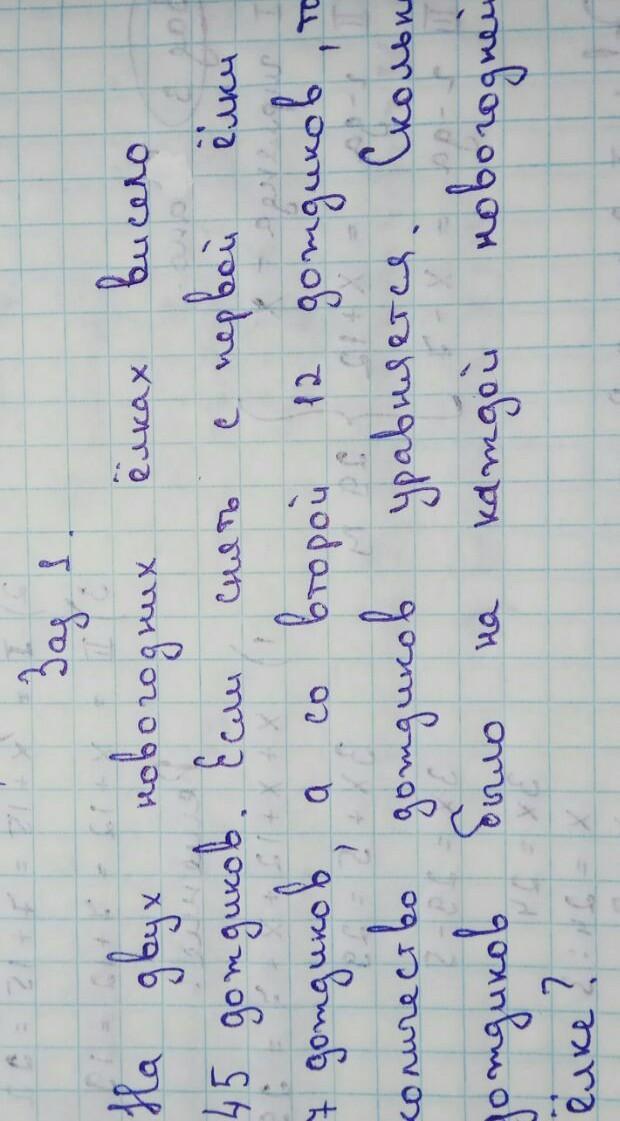 Зад 1.
На двух новогодних ёлках висело
45 дождиков. Если снять с первой ёлки
7 дождиков, а со второй 12 дождиков, то
количество дождиков уравняется. Скольк
дождиков было на каждой новогодней
ёлке?